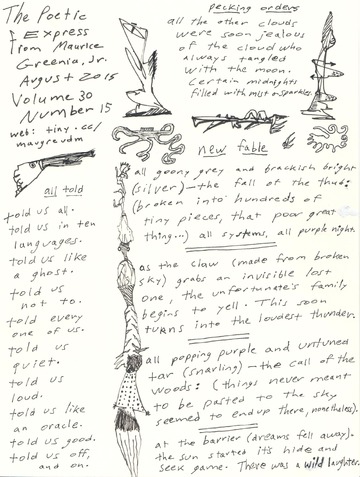 The Poetic
Express
from Maurice
Greenia, Jr.
August 2015
Volume 30
Number 15
web: tiny.cc/
maugreudm
pecking orders
all the other clouds
were soon jealous
of the cloud who
always tangled
with the moon.
Certain midnights
filled with mist or sparkles.
all told
told us all.
told us in ten
languages.
told us like
a ghost.
told us
not to.
told every
one of us.
told us
quiet.
told us
loud.
told us like
an oracle.
told us good.
told us off,
and on.
new fable
all goony grey and brackish bright
(silver)—the fall of the thud:
(broken into hundreds of
tiny pieces, that poor great
thing...) all systems, all purple night.
as the claw (made from broken
sky) grabs an invisible lost
one, the unfortunate's family
begins to yell. This soon
turns into the loudest thunder.
all popping purple and untuned
tar (snarling)—the call of the
woods: (things never meant
to be pasted to the sky
seemed to end up there, nonetheless).
at the barrier (dreams fell away).
the sun started its hide and
seek game. There was a wild laughter.